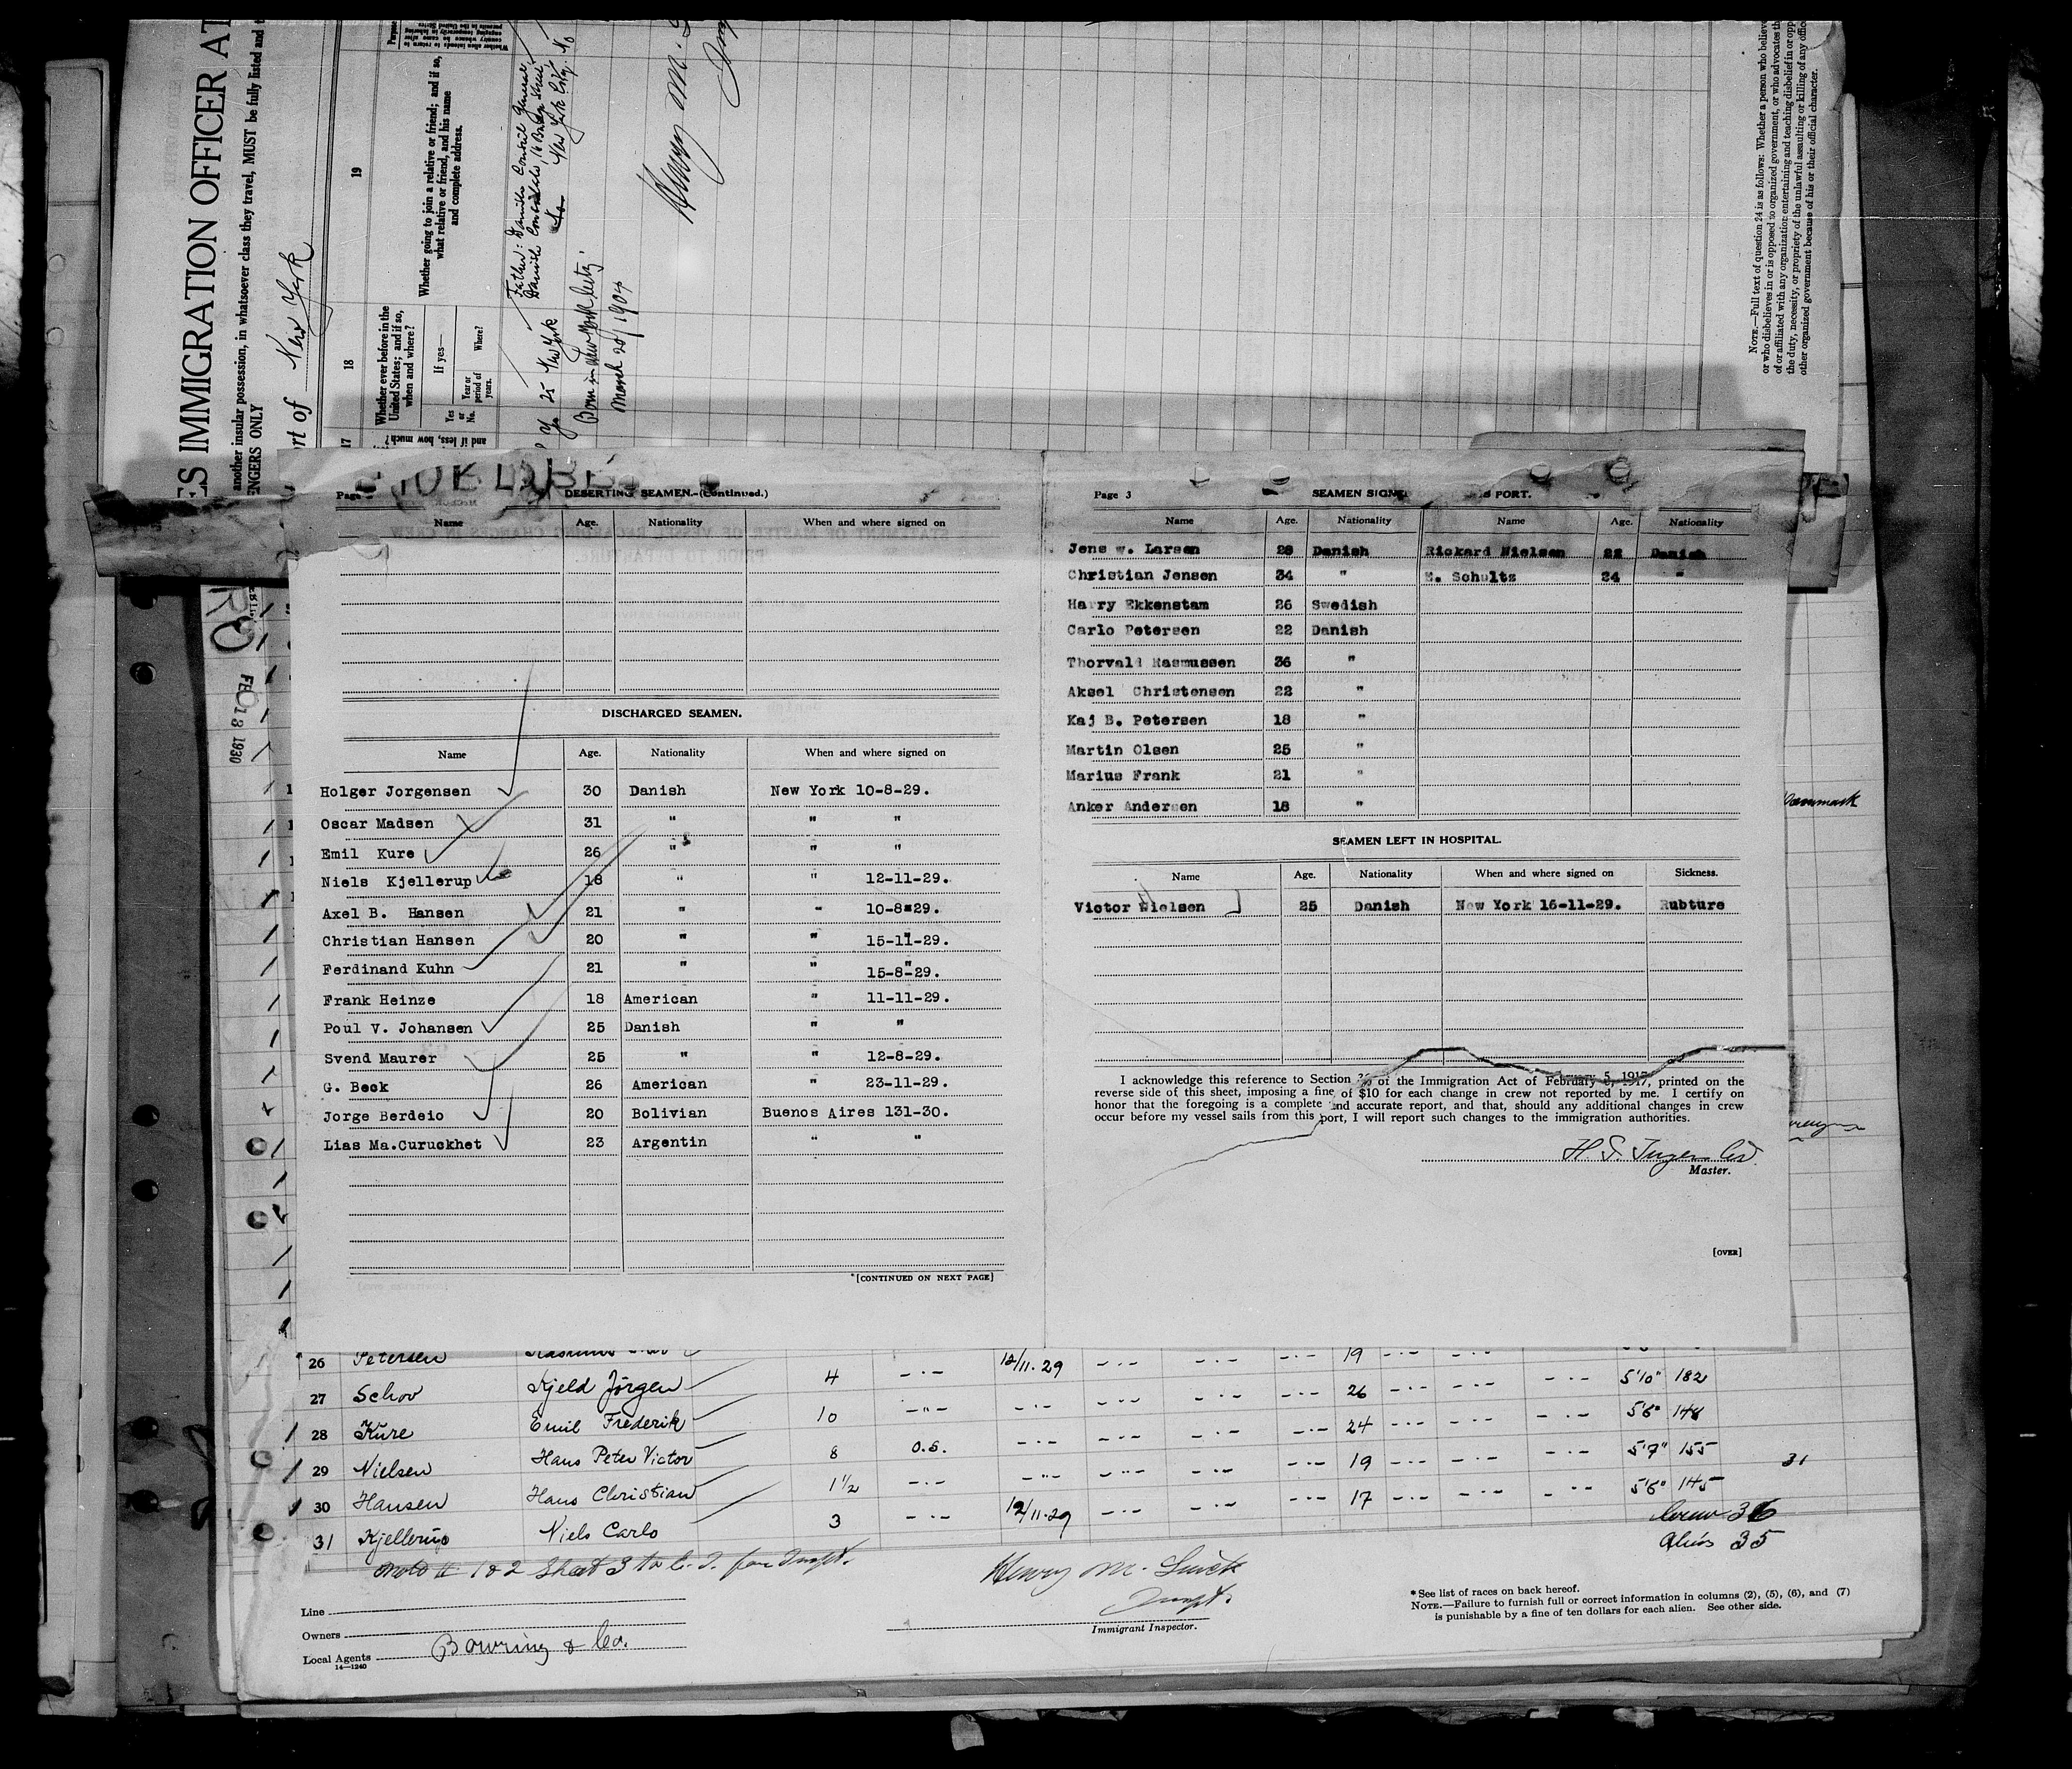 ES IMMIGRATION OFFICER AT
another insular possession, in whatsoever class they travel, MUST be fully listed and
ENGERS ONLY
rt of New York
17
18
19
and if less, how much?
Whether ever before in the United States; and if so, when and where?
If yes—
Yes or No.
Year or period of years.
Where?
Whether going to join a relative or friend; and if so, what relative or friend, and his name and complete address.
25 New York
Father: Danish Consul General
New York City.
No
Born in New York City
March 20/1904
Henry M.
NOTE.—Full text of question 24 is as follows: Whether a person who believe
or who disbelieves in or is opposed to organized government, or who advocates th
of or affiliated with any organization entertaining and teaching disbelief in or opp
the duty, necessity, or propriety of the unlawful assaulting or killing of any offic
other organized government because of his or their official character.
FEB 18 1930
Page
DESERTING SEAMEN.-(Continued.)
Name Age. Nationality When and where signed on
DISCHARGED SEAMEN.
Name Age. Nationality When and where signed on
Holger Jorgensen 30 Danish New York 10-8-29.
Oscar Madsen 31 " " "
Emil Kure 26 " " "
Niels Kjellerup 18 " " 12-11-29.
Axel B. Hansen 21 " " 10-8-29.
Christian Hansen 20 " " 15-11-29.
Ferdinand Kuhn 21 " " 15-8-29.
Frank Heinze 18 American " 11-11-29.
Poul V. Johansen 25 Danish " "
Svend Maurer 25 " " 12-8-29.
G. Beck 26 American " 23-11-29.
Jorge Berdeio 20 Bolivian Buenos Aires 131-30.
Lias Ma.Curuckhet 23 Argentin " "
*[CONTINUED ON NEXT PAGE]
Page 3
SEAMEN SIGNE S PORT.
Name Age. Nationality Name Age. Nationality
Jens w. Larsen 28 Danish Rickard Nielsen 22 Danish
Christian Jensen 34 " Schultz 24 "
Harry Ekkenstam 26 Swedish
Carlo Petersen 22 Danish
Thorvald Rasmussen 36 "
Aksel Christensen 22 "
Kaj B. Petersen 18 "
Martin Olsen 25 "
Marius Frank 21 "
Anker Andersen 18 "
SEAMEN LEFT IN HOSPITAL.
Name Age. Nationality When and where signed on Sickness.
Victor Nielsen 25 Danish New York 16-11-29. Rubture
I acknowledge this reference to Section of the Immigration Act of February 5, 1917, printed on the
reverse side of this sheet, imposing a fine of $10 for each change in crew not reported by me. I certify on
honor that the foregoing is a complete and accurate report, and that, should any additional changes in crew
occur before my vessel sails from this port, I will report such changes to the immigration authorities.
Master.
[OVER]
Danmark
26 Petersen 12/11.29 19
27 Schov Kjeld Jörgen 4 26 5'10" 182
28 Kure Emil Frederik 10 24 5'6" 148
29 Nielsen Hans Peter Victor 8 O.S. 19 5'7" 155
30 Hansen Hans Christian 1½ 17 5'6" 145
31 Kjellerup Niels Carlo 3 12/11.29
31
Crew 36
Aliens 35
1 & 2 Sheet 3
Henry M.
Inspt.
Immigrant Inspector.
Line
Owners
Local Agents Bowring & Co.
14—1240
*See list of races on back hereof.
NOTE.—Failure to furnish full or correct information in columns (2), (5), (6), and (7)
is punishable by a fine of ten dollars for each alien. See other side.